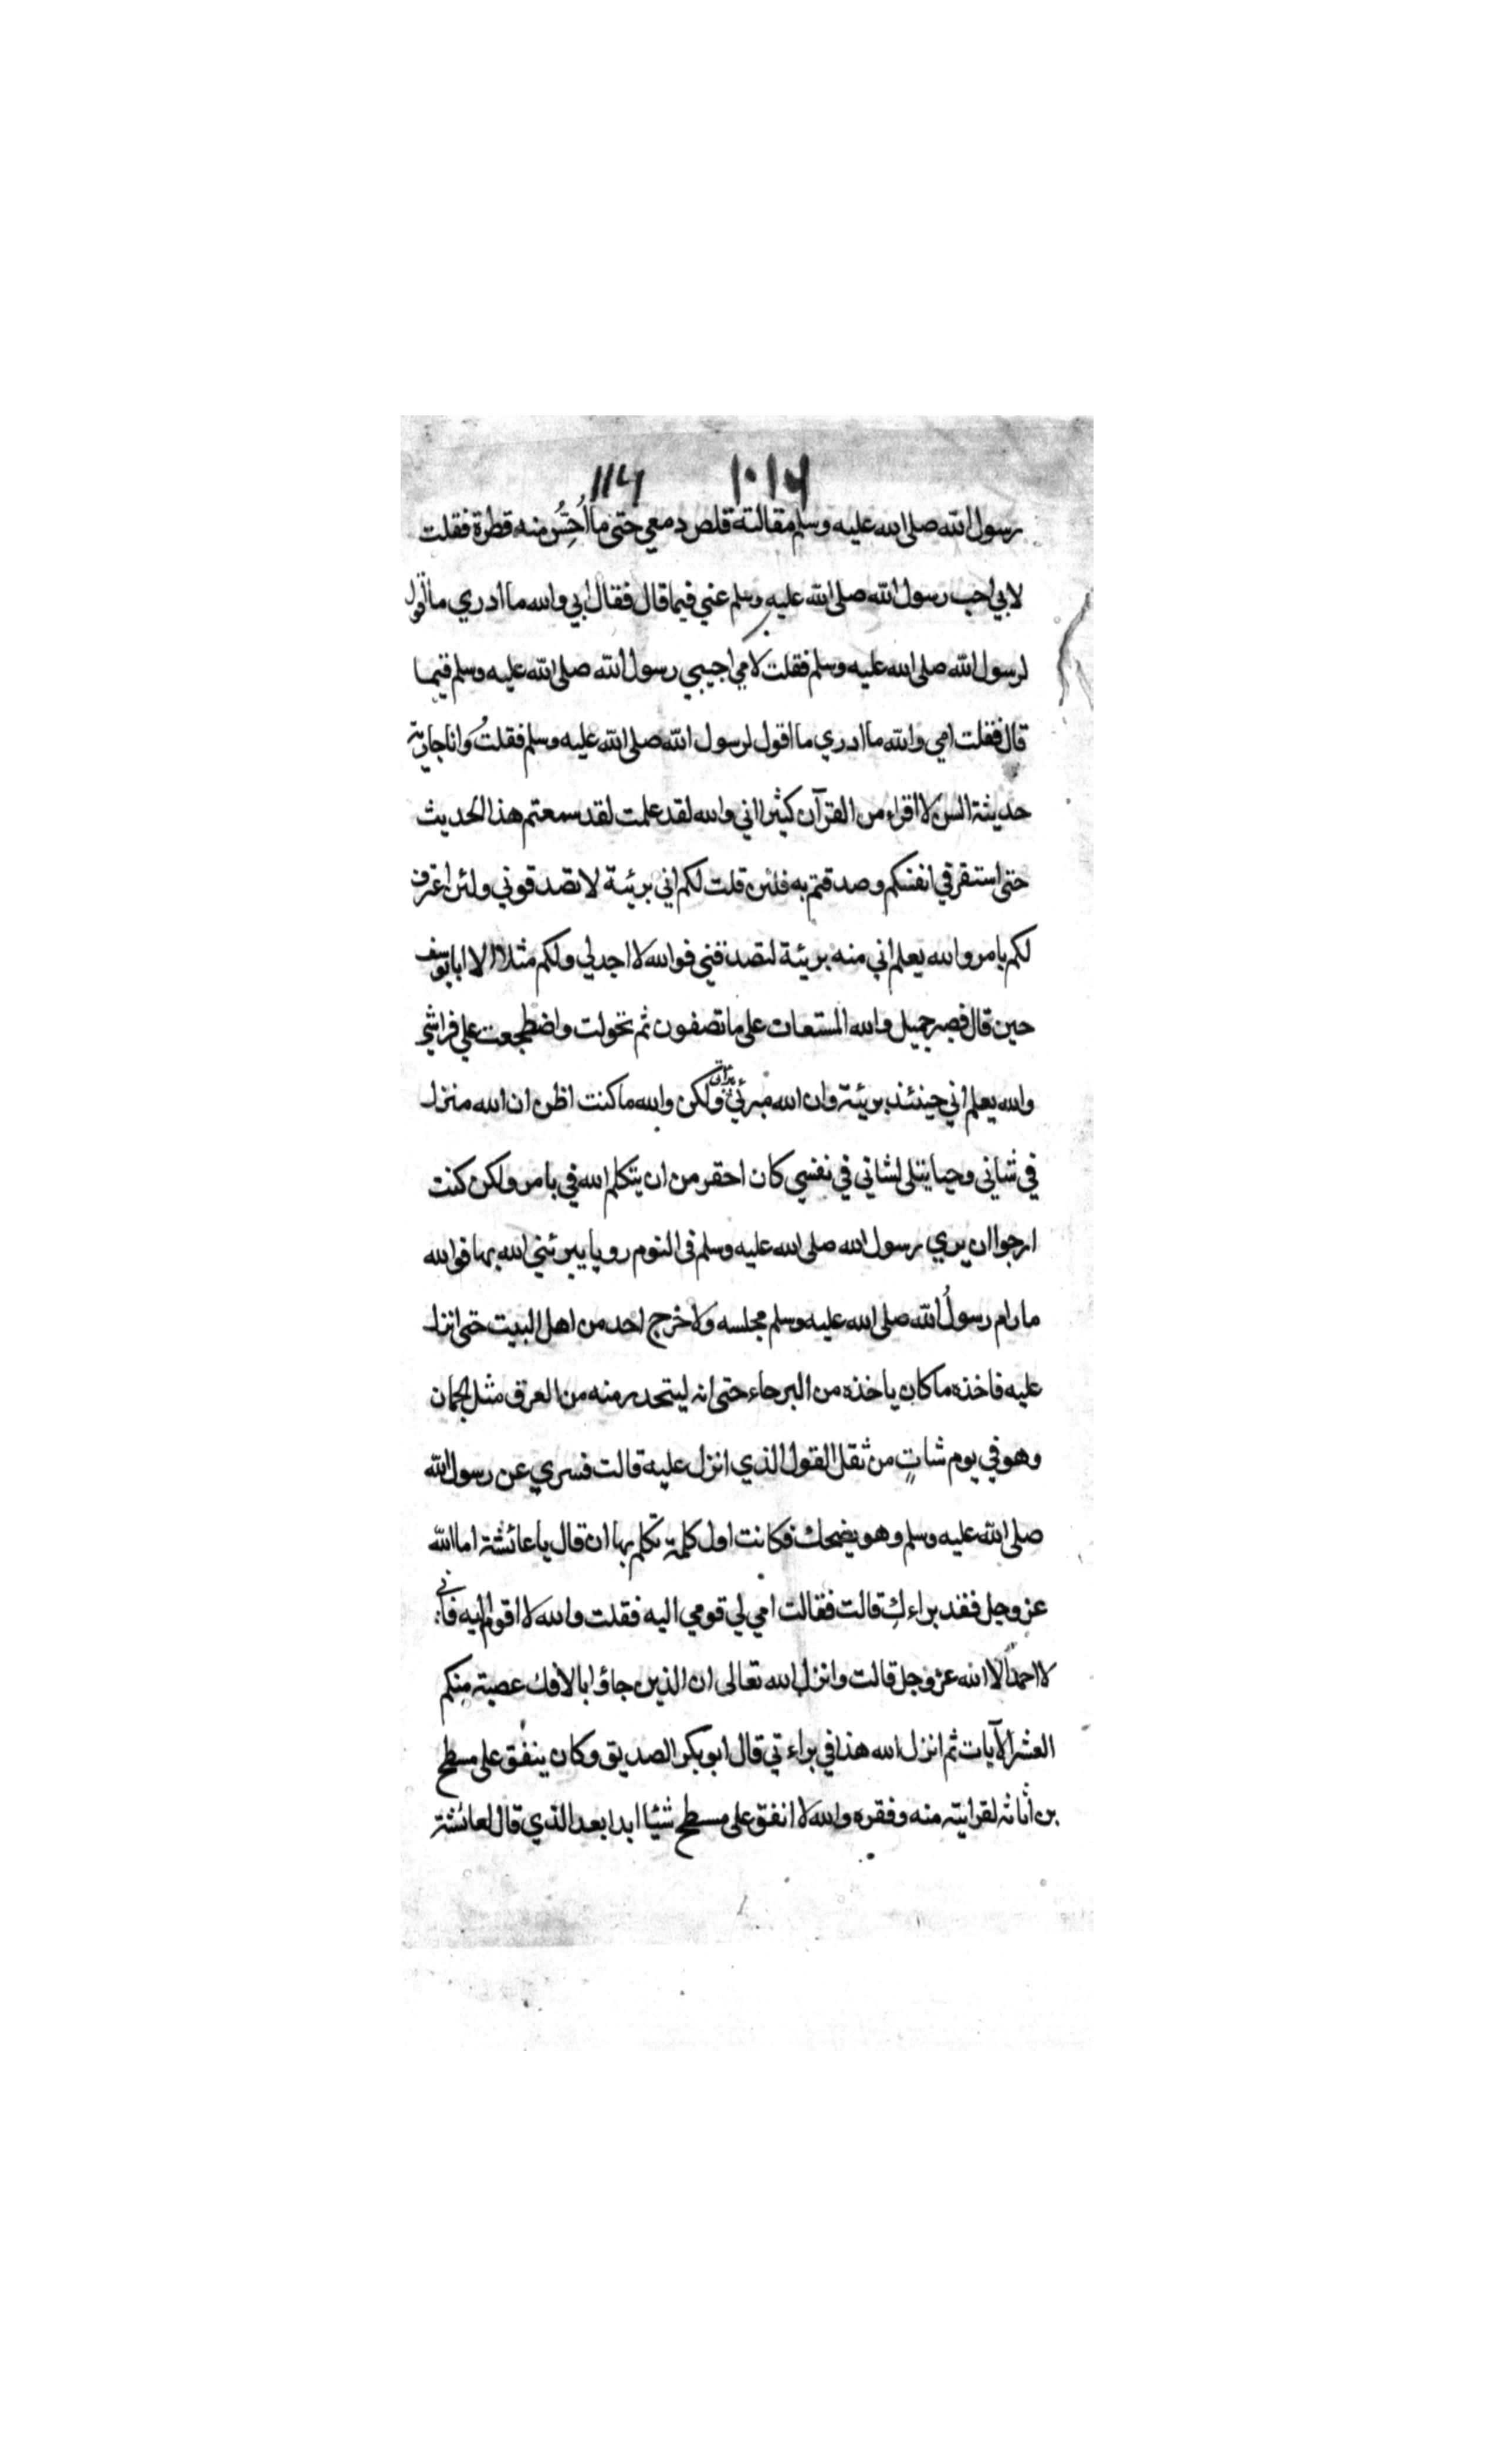 ١٠١٦ ١١٤٦
رسول الله صلى الله عليه وسلم مقالته قلص دمعي حتى ما اُحِسُّ منه قطرة فقلت
لابي اجب رسول الله صلى الله عليه وسلم عني فيما قال فقال ابي والله ما ادري ما اقول
لرسول الله صلى الله عليه وسلم فقلت لامي اجيبي رسول الله صلى الله عليه وسلم فيما
قال فقلت امي والله ما ادري ما اقول لرسول الله صلى الله عليه وسلم فقلتُ وانا جارية
حديثة السن لا اقراء من القرآن كثيرا اني والله لقد علمت لقد سمعتم هذا الحديث
حتى استقر في انفسكم وصدقتم به فلئن قلت لكم اني بريئة لا تصدقوني ولئن اعترفت
لكم بامر والله يعلم اني منه بريئة لتصدقني فوالله لا اجد لي ولكم مثلا الا ابا يوسف
حين قال فصبر جميل والله المستعان على ما تصفون ثم تحولت واضطجعت على فراشي
والله يعلم اني حينئذ بريئة وان الله مبرئي ببراتي ولكن والله ما كنت اظن ان الله منزل
في شاني وحيا يتلى لشاني في نفسي كان احقر من ان يتكلم الله في بامر ولكن كنت
ارجوا ان يري رسول الله صلى الله عليه وسلم في النوم رويا يبرئني الله بها فوالله
ما رام رسولُ الله صلى الله عليه وسلم مجلسه ولا خرج احد من اهل البيت حتى انزل
عليه فاخذه ما كان ياخذه من البرحاء حتى انه ليتحدر منه من العرق مثل الجمان
وهو في يوم شاتٍ من ثقل القول الذي انزل عليه قالت فسري عن رسول الله
صلى الله عليه وسلم وهو يضحك فكانت اول كلمة تكلم بها ان قال يا عائشة اما الله
عز وجل فقد براءكِ قالت فقالت امي لي قومي اليه فقلت والله لا اقوم اليه فاني
لا احمد الا الله عز وجل قالت وانزل الله تعالى ان الذين جاؤا بالافك عصبة منكم
العشر الآيات ثم انزل الله هذا في براءتي قال ابو بكر الصديق وكان ينفق على مسطح
بن اثاثه لقرابته منه وفقره والله لا انفق على مسطح شيئا ابدا بعد الذي قال لعائشة